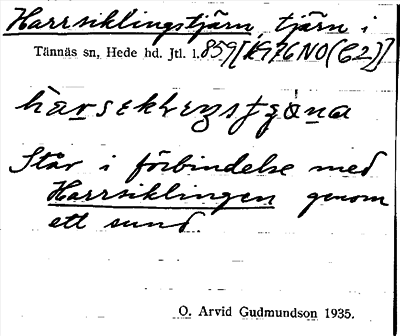 Harrsiklingstjärn, tjärn i
Tännäs sn, Hede hd. Jtl. l. 859 [K176NO(C2)]
Står i förbindelse med
Harrsiklingen genom
ett sund.
O. Arvid Gudmundson 1935.